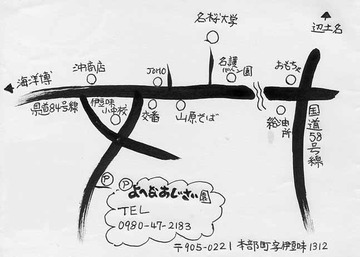 名桜大学
辺土名
海洋博
沖商店
JOMO
名護パイン園
おもちゃ
県道84号線
伊豆味
小中校
交番
山原そば
給油所
国道58号線
P
P
よへなあじさい園
TEL
0980-47-2183
〒905-0221 本部町字伊豆味1312